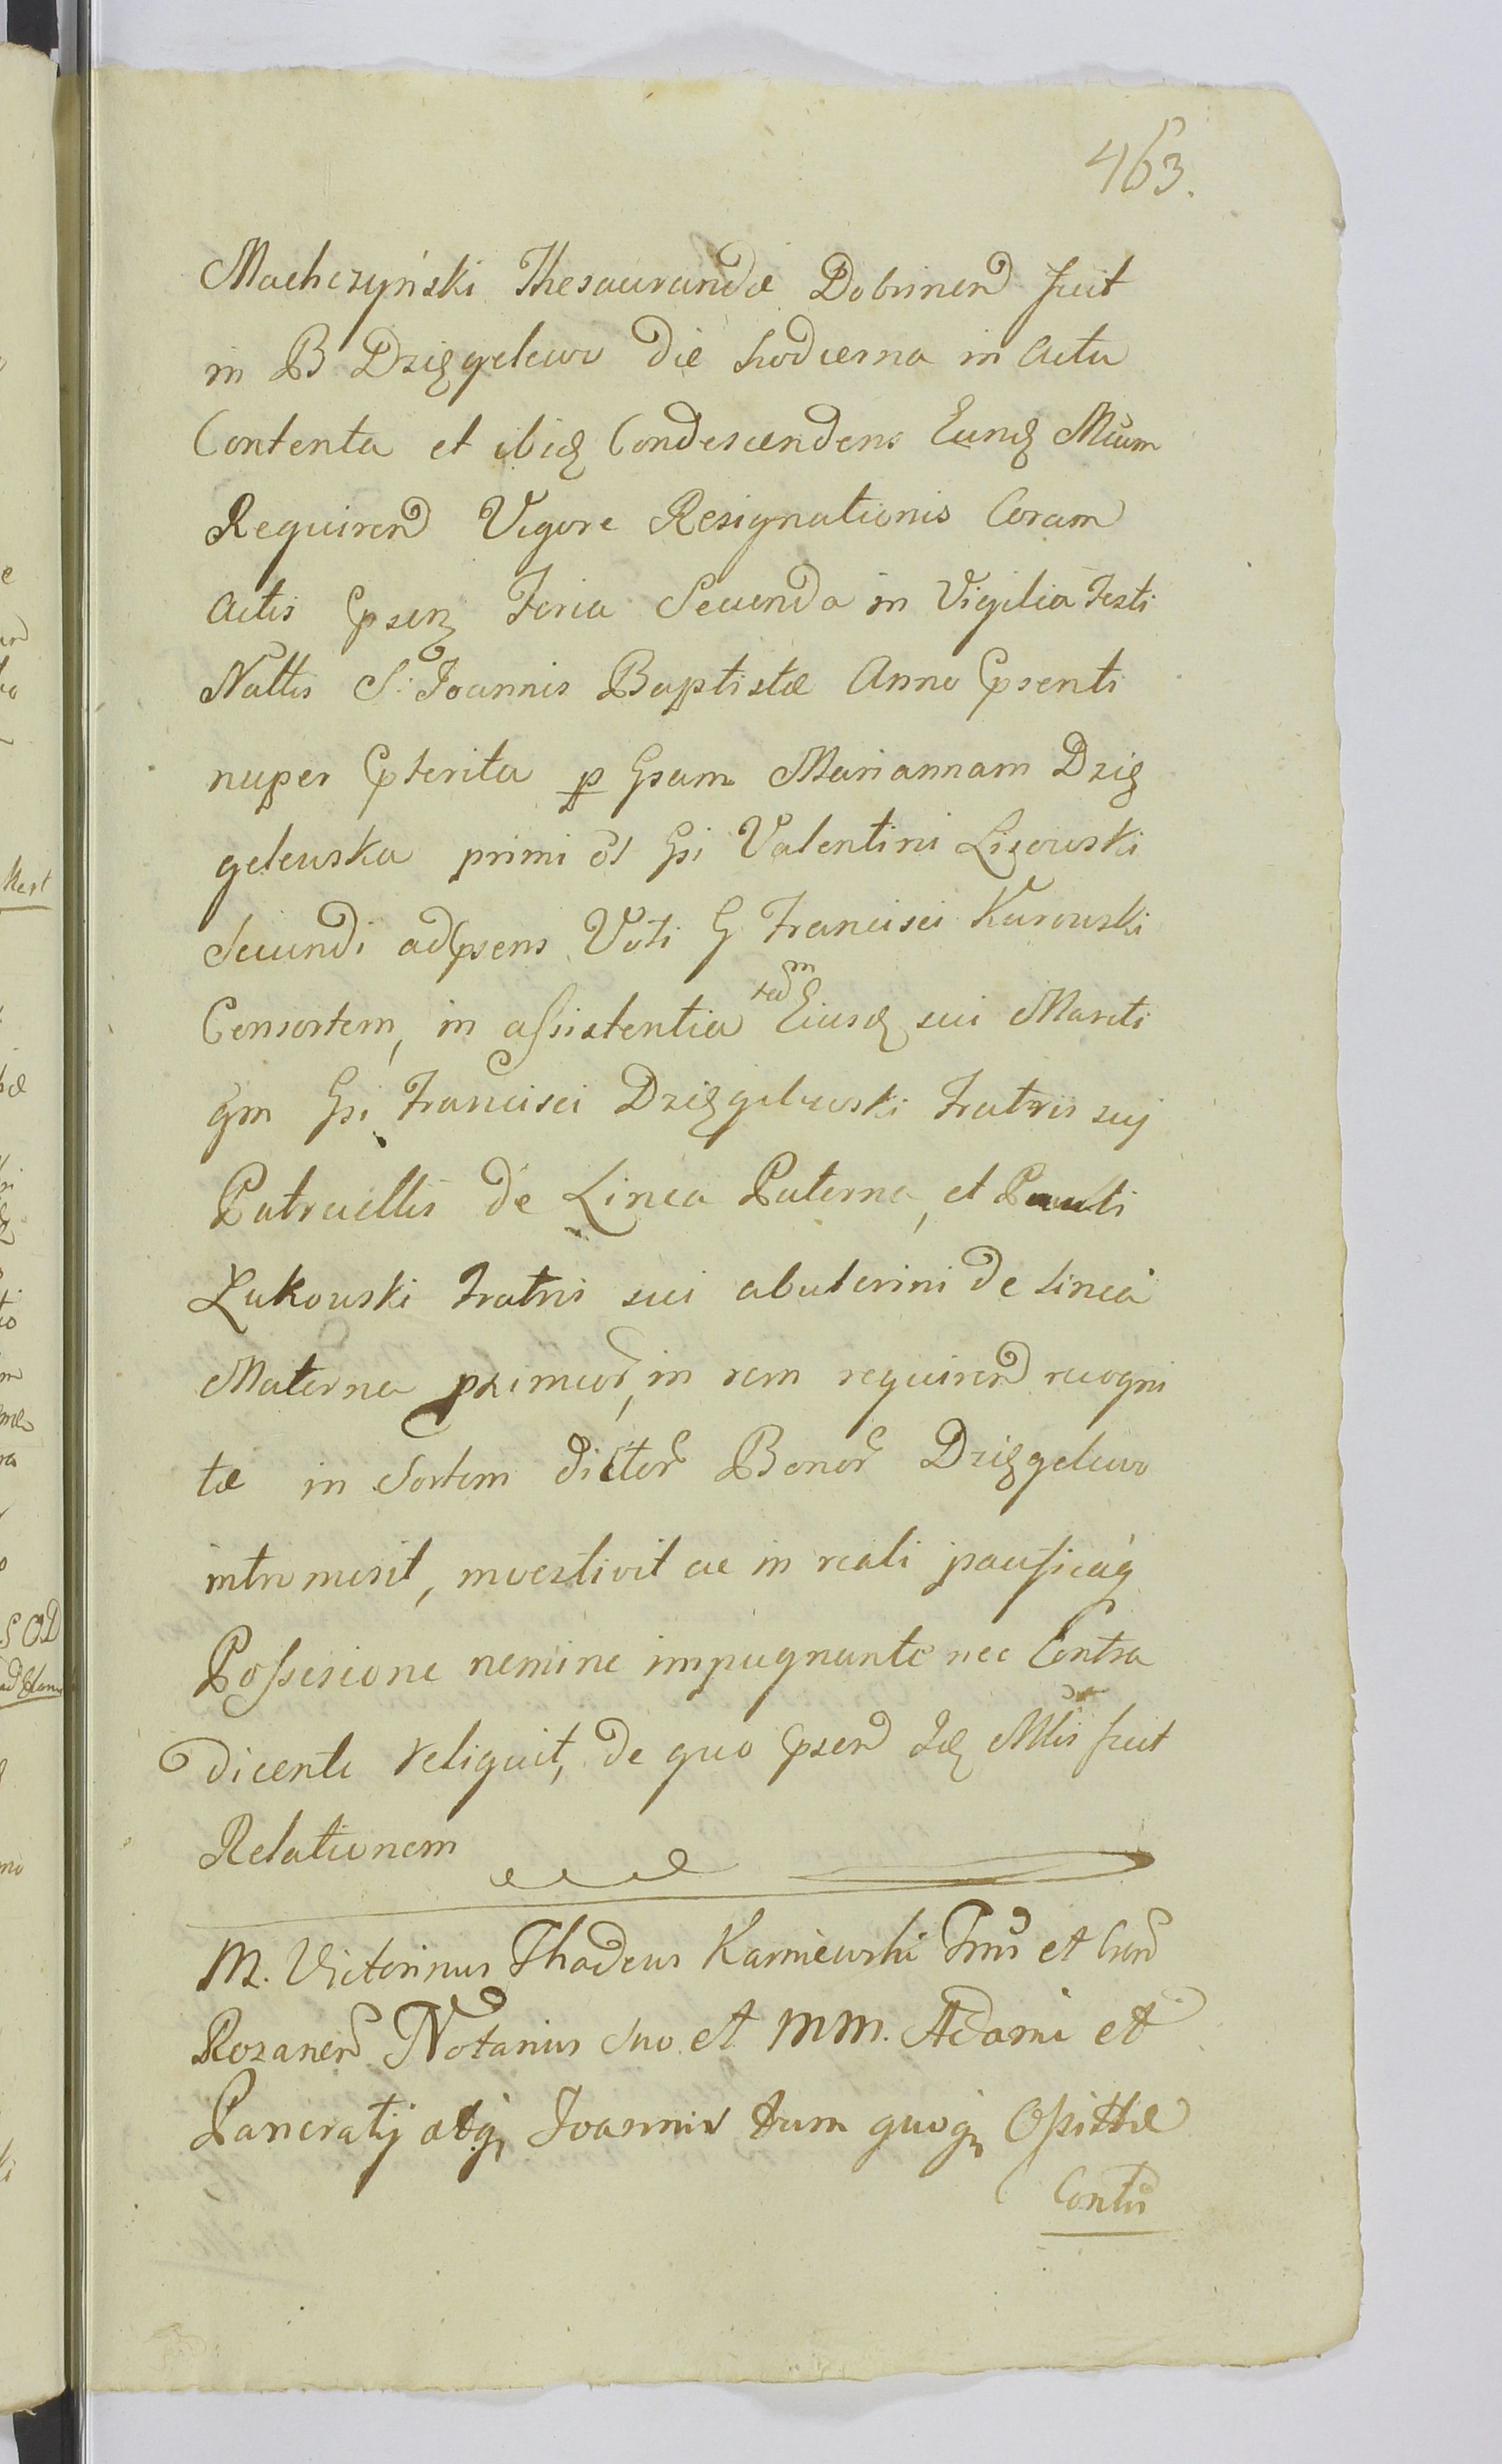 463.
Machczyński Thesaurandæ Dobrinen fuit
in B Dzięgelewo die hodierna in actu
Contenta et ibidę Condescendens Eundę Mium
Requiren Vigore Resignationis Coram
Actis Psen Feria Secunda in Vigilia Festi
Nattis S. Joannis Baptistæ Anno Psenti
nuper Pterita p Gsam Mariannam Dzię
gelewska primi ol Gsi Valentini Lisowski
Secundi ad Psens Voti G Francisci Kurowski
Consortem, in assistentia tam Eiusdę sui Mariti
qm Gsi Francisci Dzięgelewski Fratris suj
Patruellis de Linea Paterna, et Pauli
Łukowski Fratris sui abuterini de linea
Materna primior, in rem requiren recogni
tæ in Sortem dictor Bonor Dzięgelewo
intromisit, investivit ac in reali pacificaq
Possesione nemine impugnante nec Contra
dicente reliquit, de quo psen Idę Mlis fuit
Relationem
M. Victorinus Thadeus Karniewski Trris et Cren
Rozanen Notarius Suo et MM. Adami et
Pancratij atq Joannis tum quoq Opittæ
Contis
Rest